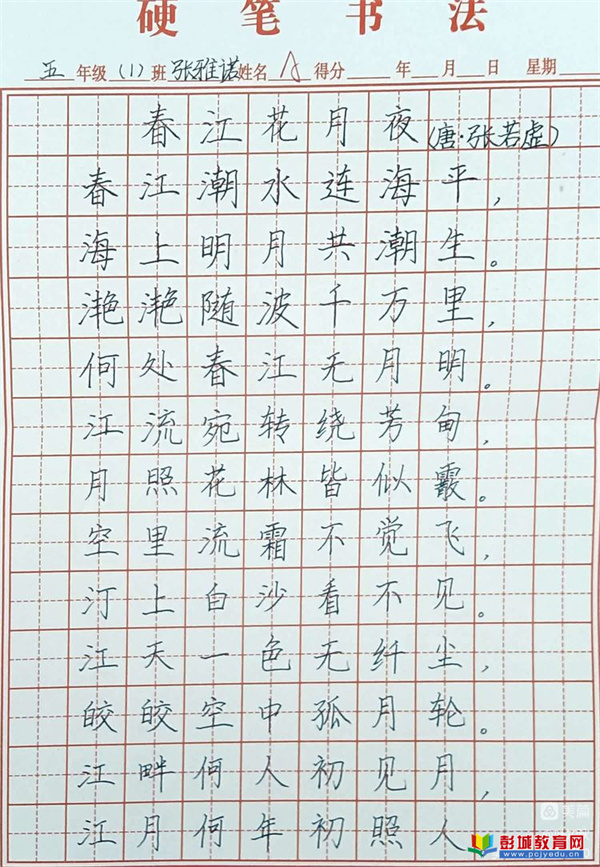 硬笔书法
五年级(1)班张雅诺姓名A得分___年___月___日 星期___
春江花月夜(唐·张若虚)
春江潮水连海平,
海上明月共潮生。
滟滟随波千万里,
何处春江无月明。
江流宛转绕芳甸,
月照花林皆似霰。
空里流霜不觉飞,
汀上白沙看不见。
江天一色无纤尘,
皎皎空中孤月轮。
江畔何人初见月,
江月何年初照人
彭城教育网
www.pcjyedu.cn